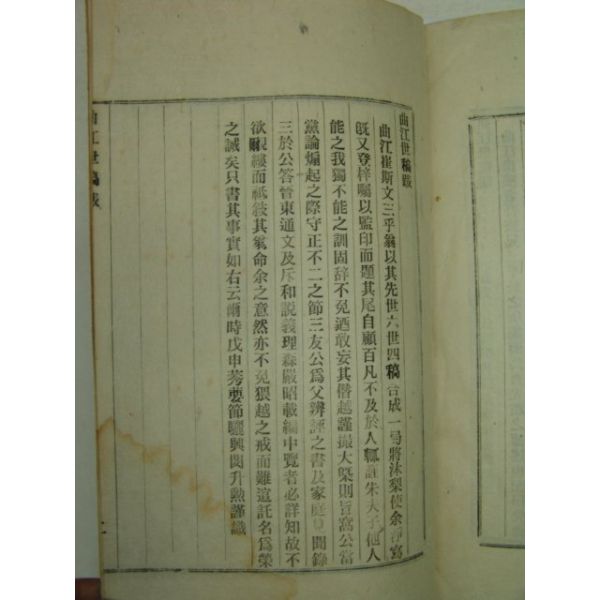 曲江世稿跋
曲江崔斯文三乎翁以其先世六世四稿合成一弓將沐梨使余淨寫
旣又登梓囑以監印而題其尾自顧百凡不及於人輒註朱夫子他人
能之我獨不能之訓固辞不免廼敢妄其僭越謹撮大槩則旨窩公當
黨論煽起之際守正不二之節三友公爲父辨誣之書及家庭見聞錄
三於公答管東通文及斥和説義理森嚴昭載編中覽者必詳知故不
欲覼縷而祗效其氣命余之意然亦不免猥越之戒而難這託名爲榮
之誠矣只書其事實如右云爾時戊申蓂節驪興閔升勲謹識
曲江世稿跋
二